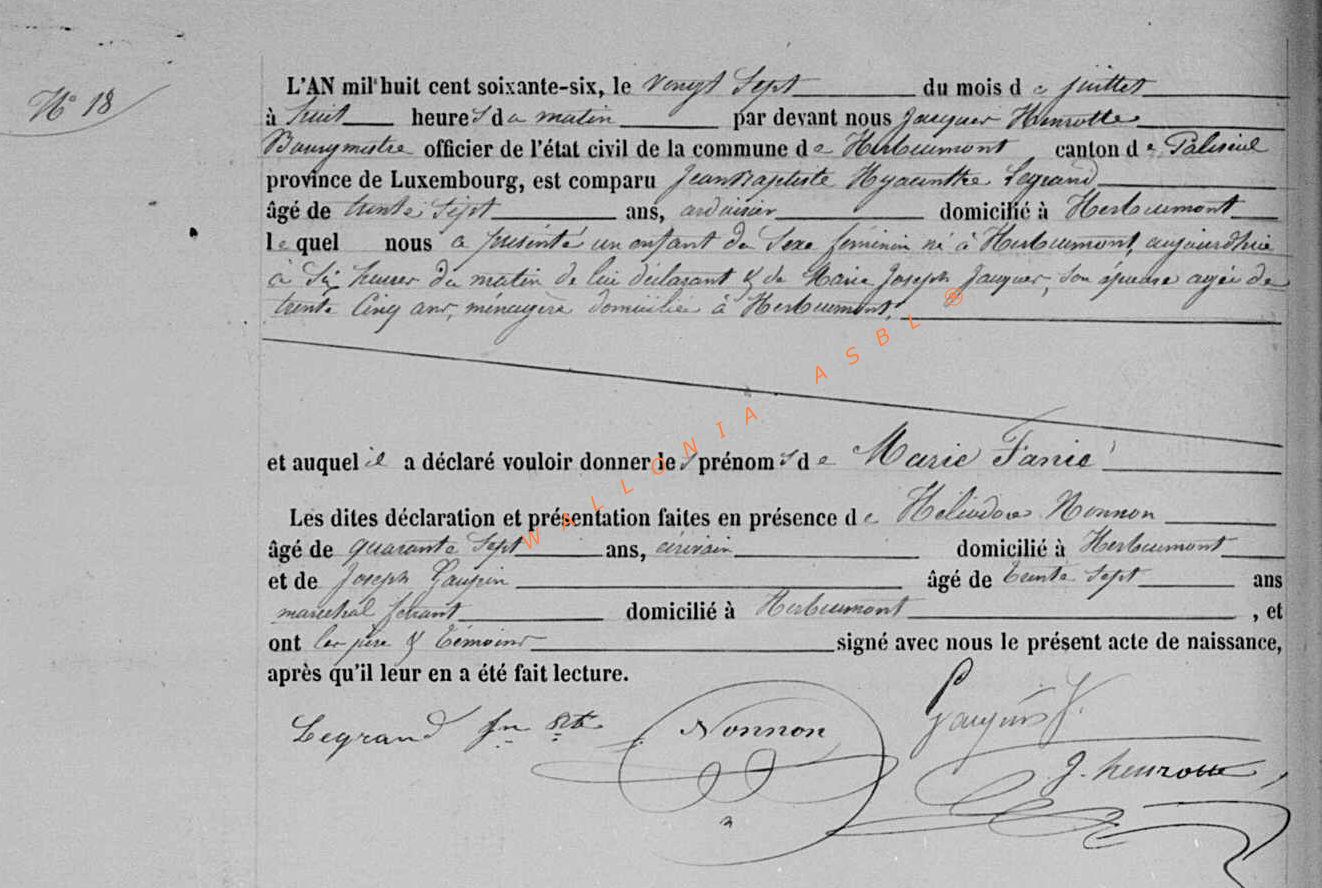 N° 18
L'AN mil huit cent soixante-six, le vingt Sept du mois de juillet
à huit heures du matin par devant nous Jacques Henrotte
Bourgmestre officier de l'état civil de la commune de Herbeumont canton de Paliseul
province de Luxembourg, est comparu Jean Baptiste Hyacinthe Legrand
âgé de trente Sept ans, ardoisier domicilié à Herbeumont
lequel nous a présenté un enfant du Sexe féminin né à Herbeumont, aujourd'hui
à Six heures du matin de lui déclarant & de Marie Joseph Jacques, son épouse agée de
trente Cinq ans, ménagère domiciliée à Herbeumont,
et auquel il a déclaré vouloir donner les prénoms de Marie Fanie
Les dites déclaration et présentation faites en présence de Héliodore Nonnon
âgé de quarante Sept ans, écrivain domicilié à Herbeumont
et de Joseph âgé de trente Sept ans
marechal ferrant domicilié à Herbeumont, et
ont les père & témoins signé avec nous le présent acte de naissance,
après qu'il leur en a été fait lecture.
Legrand jn Bte Nonnon J. henrotte
WALLONIA ASBL ®